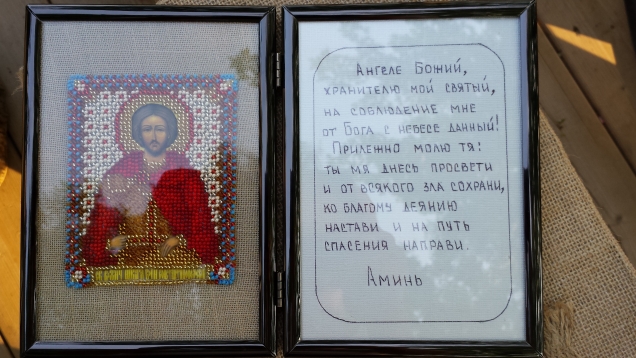 Ангеле Божий,
хранителю мой святый,
на соблюдение мне
от Бога с небесе данный!
Прилежно молю тя:
ты мя днесь просвети
и от всякого зла сохрани,
ко благому деянию
настави и на путь
спасения направи.
Аминь